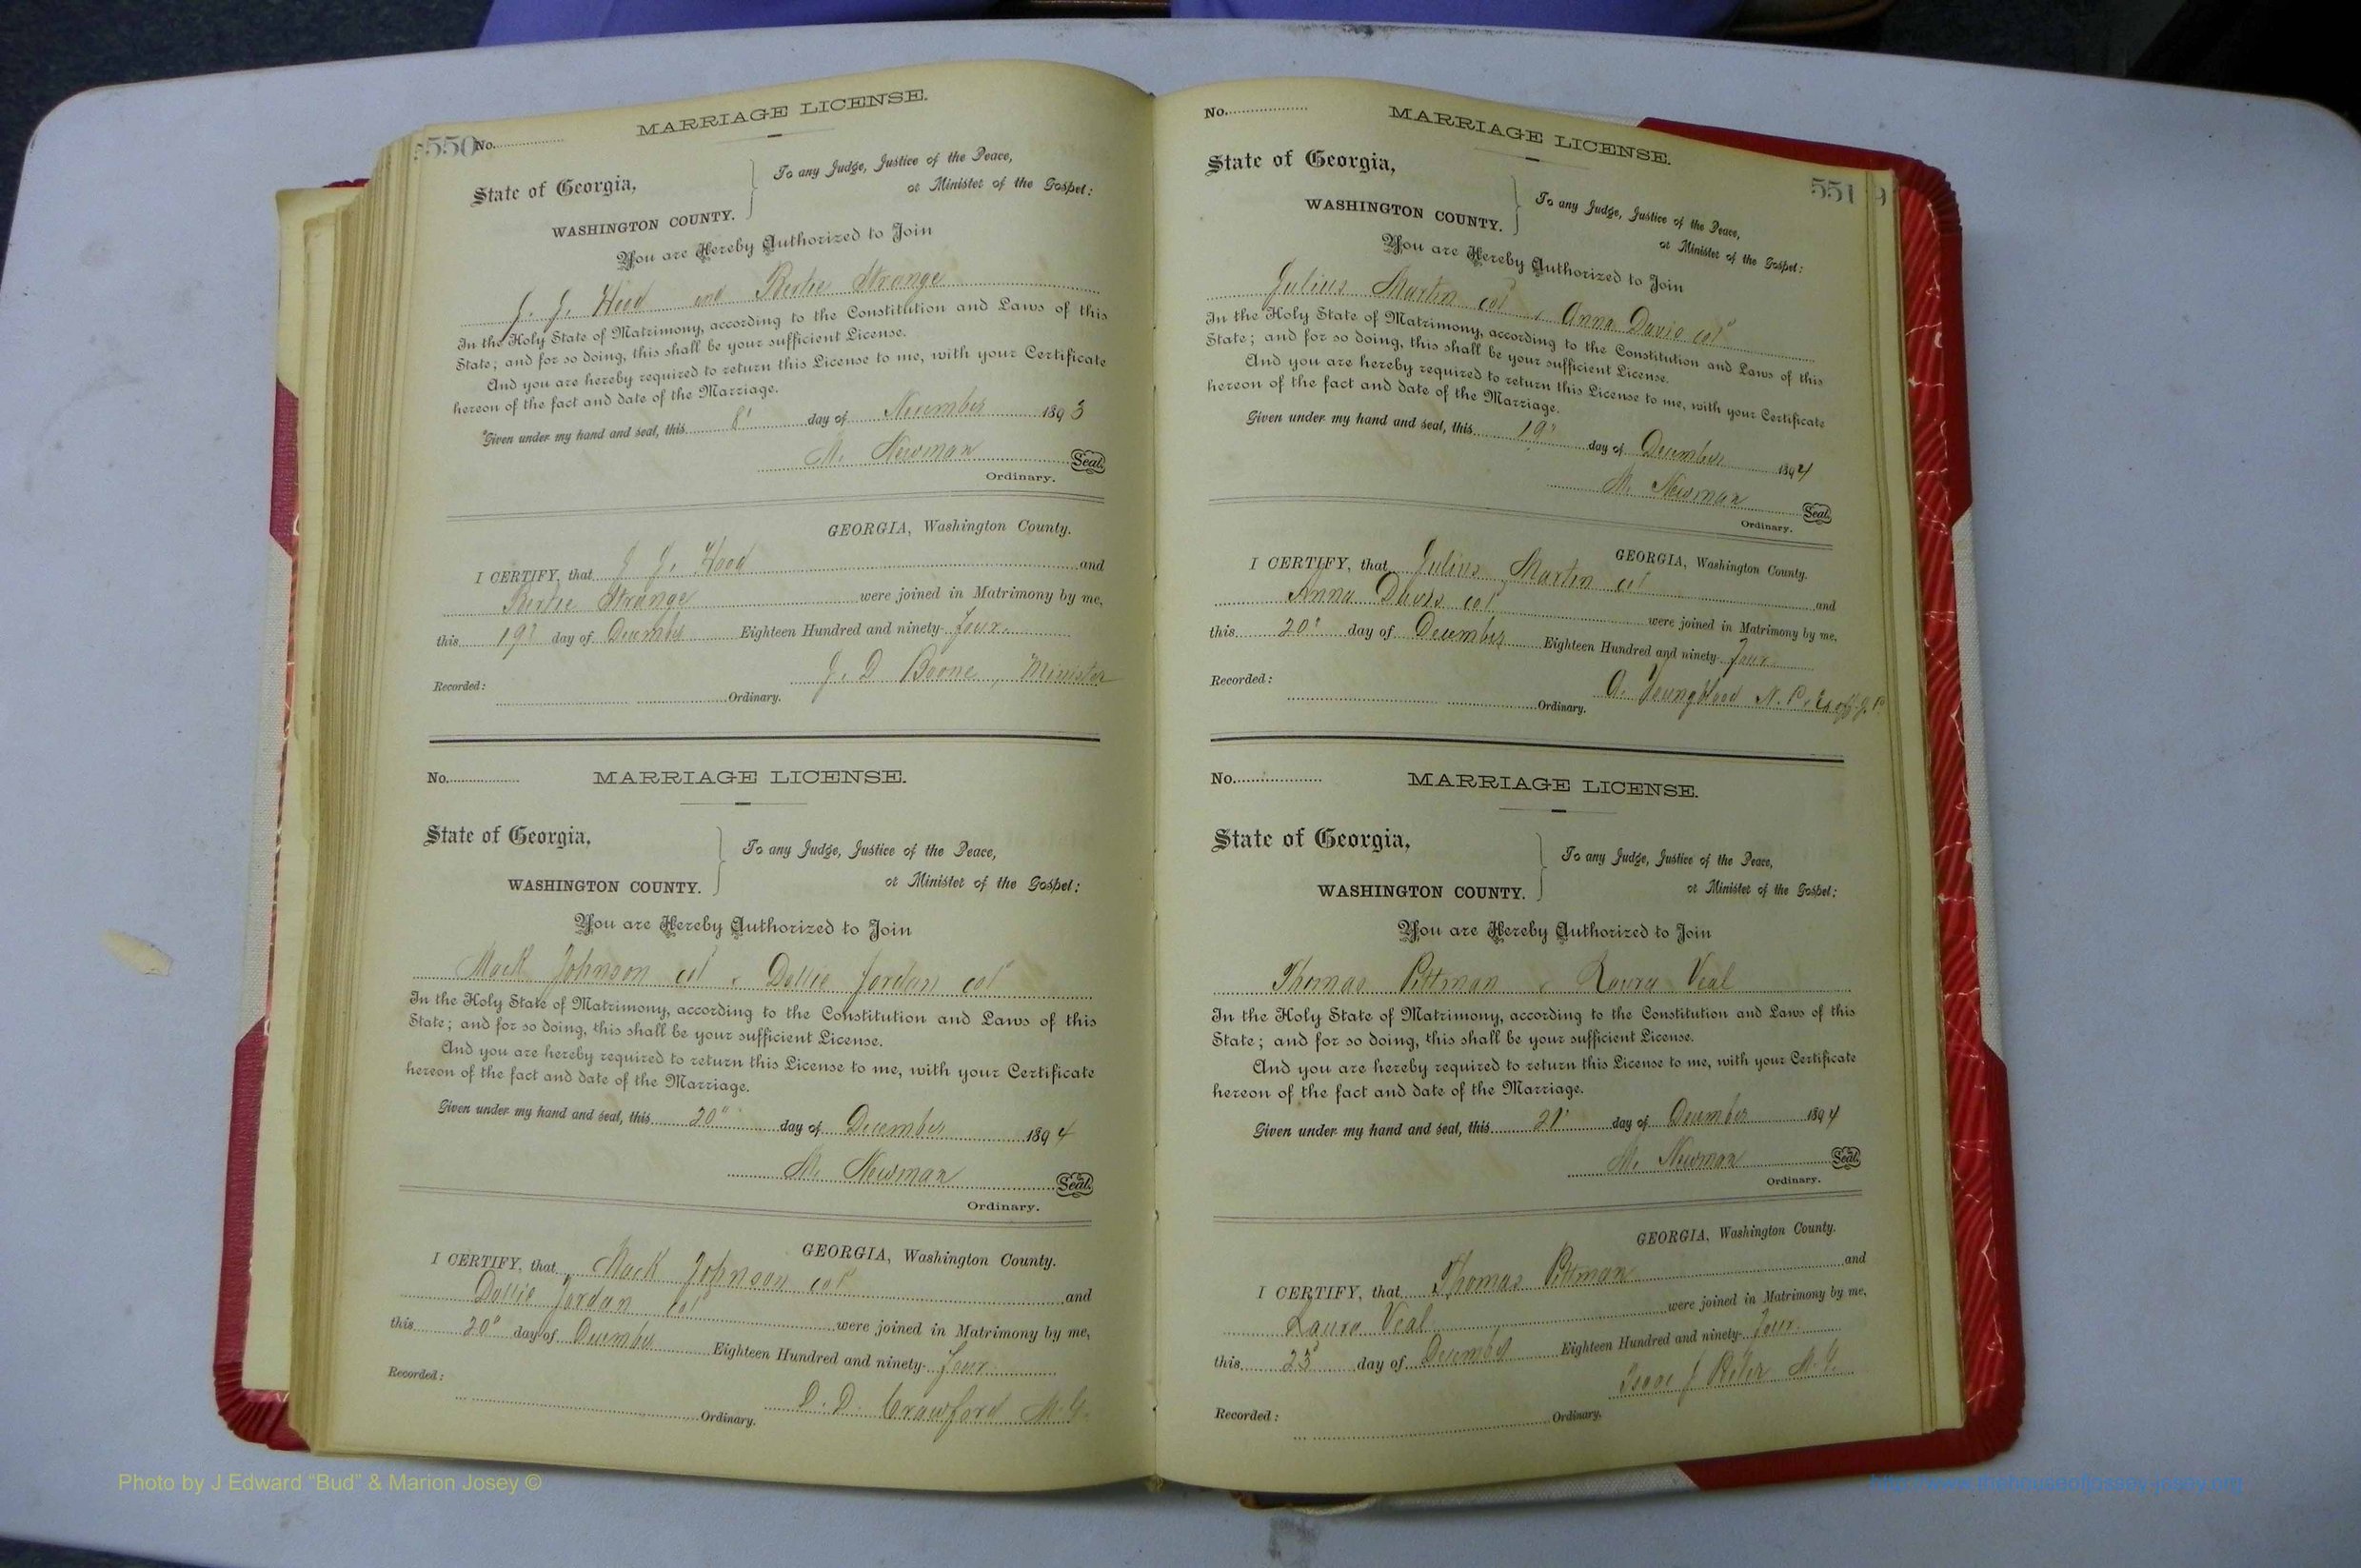 550 No.
MARRIAGE LICENSE.
State of Georgia,
WASHINGTON COUNTY.
To any Judge, Justice of the Peace,
or Minister of the Gospel:
You are Hereby Authorized to Join
J. J. Hood and Bertie Strange
In the Holy State of Matrimony, according to the Constitution and Laws of this
State; and for so doing, this shall be your sufficient License.
And you are hereby required to return this License to me, with your Certificate
hereon of the fact and date of the Marriage.
Given under my hand and seal, this 8" day of November 1893
M. Newman Seal.
Ordinary.
GEORGIA, Washington County.
I CERTIFY, that J. J. Hood and
Bertie Strange were joined in Matrimony by me,
this 19" day of December Eighteen Hundred and ninety-four.
J. D. Boone, Minister
Recorded: Ordinary.
No. MARRIAGE LICENSE.
State of Georgia,
WASHINGTON COUNTY.
To any Judge, Justice of the Peace,
or Minister of the Gospel:
You are Hereby Authorized to Join
Mack Johnson col & Dollie Jordan col
In the Holy State of Matrimony, according to the Constitution and Laws of this
State; and for so doing, this shall be your sufficient License.
And you are hereby required to return this License to me, with your Certificate
hereon of the fact and date of the Marriage.
Given under my hand and seal, this 20" day of December 1894
M. Newman Seal.
Ordinary.
GEORGIA, Washington County.
I CERTIFY, that Mack Johnson col and
Dollie Jordan col were joined in Matrimony by me,
this 20" day of December Eighteen Hundred and ninety-four.
D. D. Crawford M.G.
Recorded: Ordinary.
No.
MARRIAGE LICENSE.
551
State of Georgia,
WASHINGTON COUNTY.
To any Judge, Justice of the Peace,
or Minister of the Gospel:
You are Hereby Authorized to Join
Julius Martin col & Anna Davis col
In the Holy State of Matrimony, according to the Constitution and Laws of this
State; and for so doing, this shall be your sufficient License.
And you are hereby required to return this License to me, with your Certificate
hereon of the fact and date of the Marriage.
Given under my hand and seal, this 19" day of December 1894
M. Newman Seal.
Ordinary.
GEORGIA, Washington County.
I CERTIFY, that Julius Martin col and
Anna Davis col were joined in Matrimony by me,
this 20" day of December Eighteen Hundred and ninety-four.
A. Youngblood N.P. & Ex off. J.P.
Recorded: Ordinary.
No. MARRIAGE LICENSE.
State of Georgia,
WASHINGTON COUNTY.
To any Judge, Justice of the Peace,
or Minister of the Gospel:
You are Hereby Authorized to Join
Thomas Pittman & Laura Veal
In the Holy State of Matrimony, according to the Constitution and Laws of this
State; and for so doing, this shall be your sufficient License.
And you are hereby required to return this License to me, with your Certificate
hereon of the fact and date of the Marriage.
Given under my hand and seal, this 21" day of December 1894
M. Newman Seal.
Ordinary.
GEORGIA, Washington County.
I CERTIFY, that Thomas Pittman and
Laura Veal were joined in Matrimony by me,
this 23" day of December Eighteen Hundred and ninety-four.
M.G.
Recorded: Ordinary.
Photo by J Edward “Bud” & Marion Josey ©